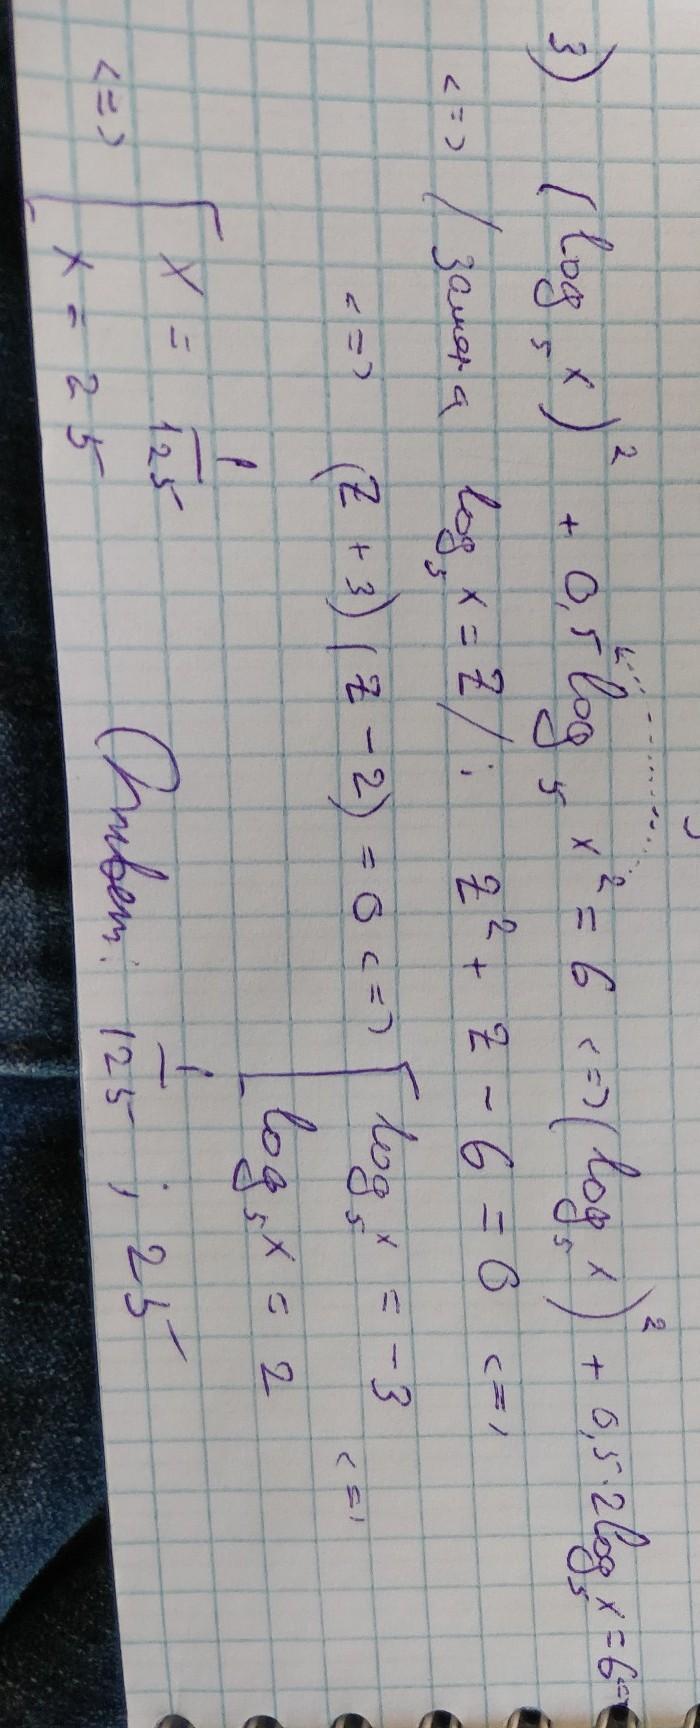 3) (log₅ x)² + 0,5 log₅ x² = 6 <=> (log₅ x)² + 0,5·2log₅ x = 6 <=>
<=> / Замена log₅ x = Z / : Z² + Z - 6 = 0 <=>
<=> (Z + 3)(Z - 2) = 0 <=> [ log₅ x = -3
log₅ x = 2 <=>
<=> [ x = 1/125
x = 25
Ответ: 1/125 ; 25